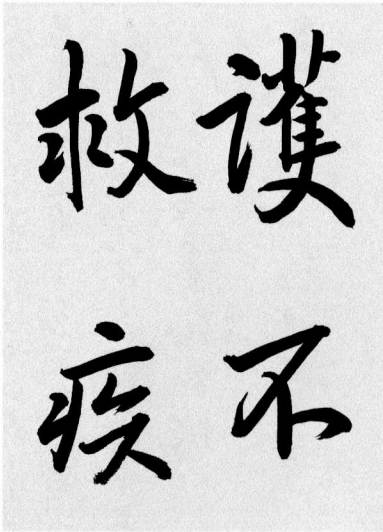 護不
救疾